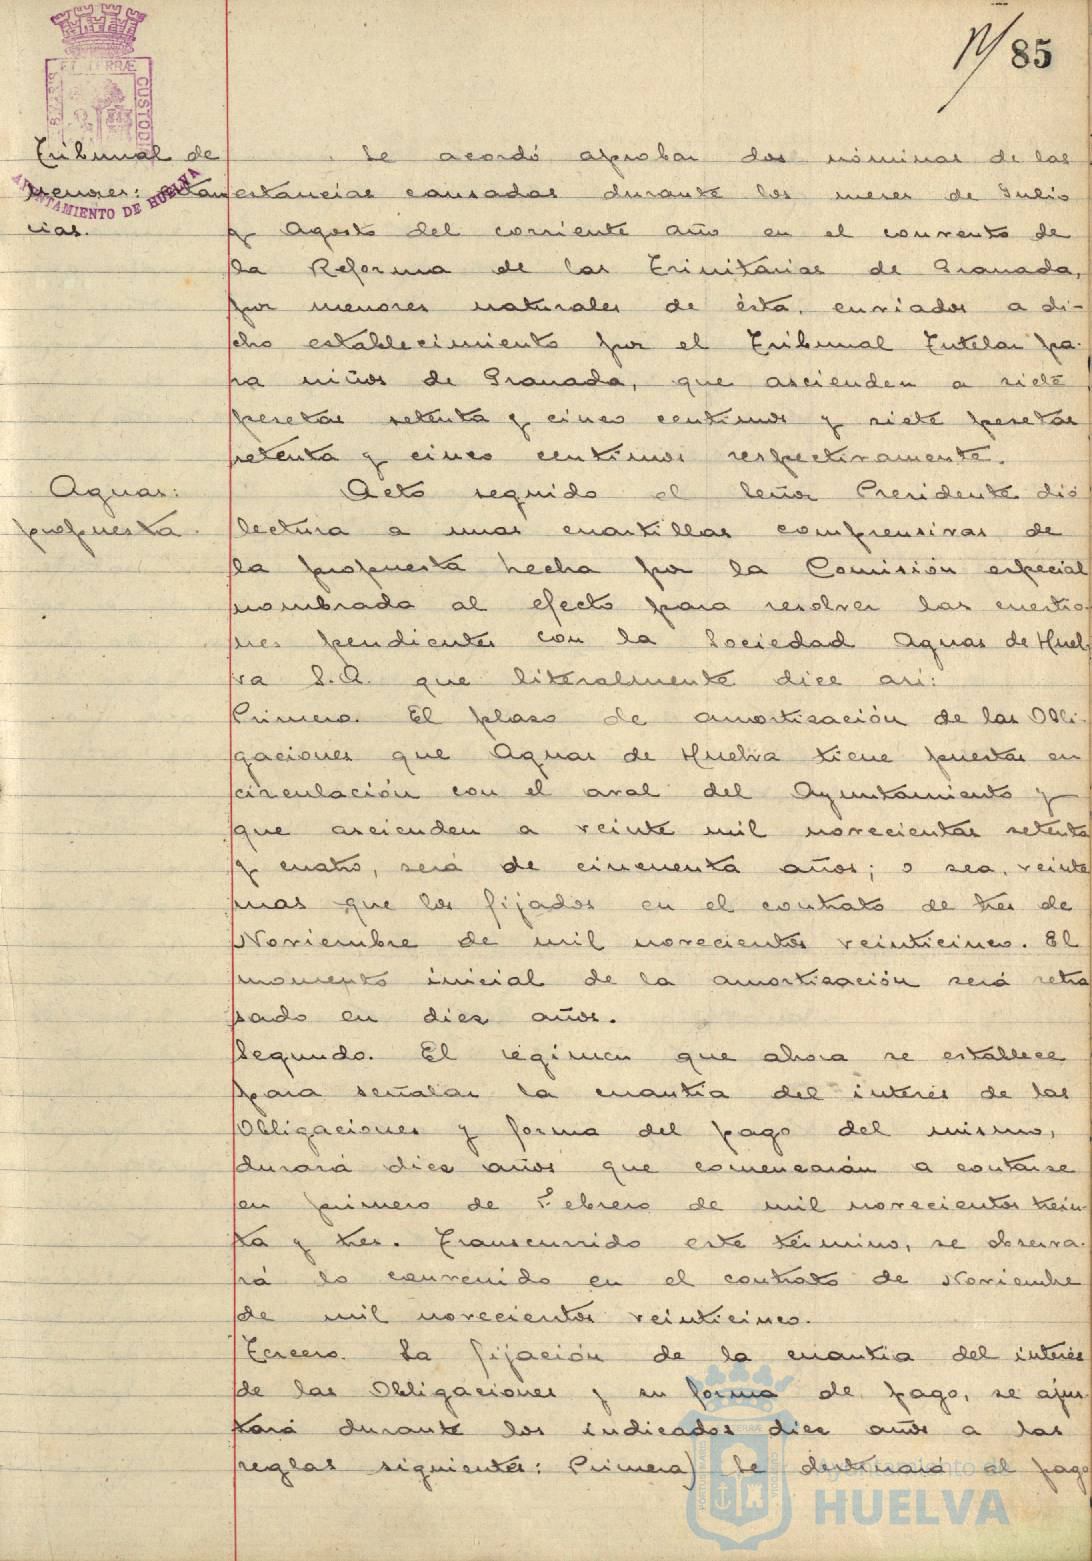 85
Tribunal de
menores: Estan
cias.
Se acordó aprobar dos nóminas de las
estancias causadas durante los meses de Julio
y Agosto del corriente año en el convento de
la Reforma de las Trinitarias de Granada,
por menores naturales de ésta, enviados a di-
cho establecimiento por el Tribunal Tutelar pa-
ra niños de Granada, que ascienden a siete
pesetas setenta y cinco centimos y siete pesetas
setenta y cinco centimos respectivamente.
Aguas:
propuesta.
Acto seguido el Señor Presidente dió
lectura a unas cuartillas comprensivas de
la propuesta hecha por la Comisión especial
nombrada al efecto para resolver las cuestio-
nes pendientes con la Sociedad Aguas de Huel-
va S.A. que literalmente dice asi:
Primero. El plaso de amortisación de las Obli-
gaciones que Aguas de Huelva tiene puestas en
circulación con el aval del Ayuntamiento y
que ascienden a veinte mil novecientas setenta
y cuatro, será de cincuenta años; o sea, veinte
mas que los fijados en el contrato de tres de
Noviembre de mil novecientos veinticinco. El
momento inicial de la amortisación será retra
sado en dies años.
Segundo. El régimen que ahora se establece
para señalar la cuantia del interés de las
Obligaciones y forma del pago del mismo,
durará dies años que comensarán a contarse
en primero de Febrero de mil novecientos trein-
ta y tres. Transcurrido este término, se observa-
rá lo convenido en el contrato de Noviembre
de mil novecientos veinticinco.
Tercero. La fijación de la cuantia del interés
de las Obligaciones y su forma de pago, se ajus-
tará durante los indicados dies años a las
reglas siguientes: Primera) Se destinará al pago
ET TERRÆ
CUSTODIA
AYUNTAMIENTO DE HUELVA
Ayuntamiento de
HUELVA